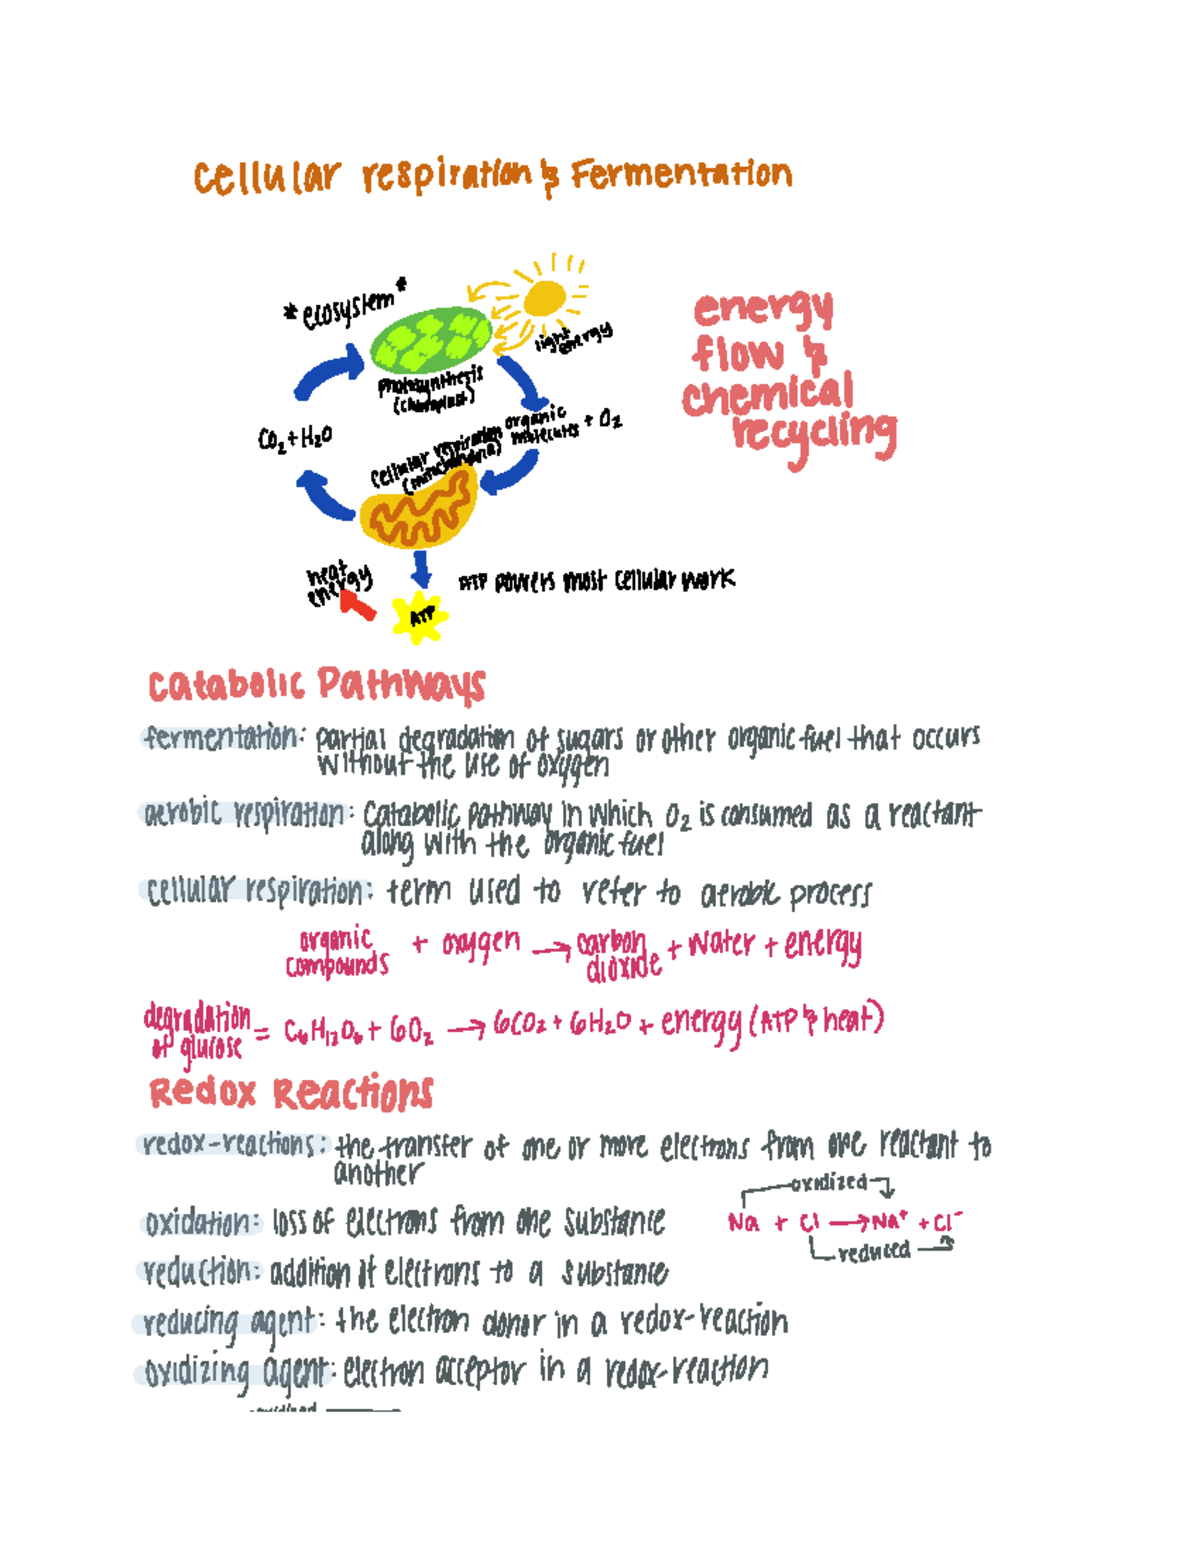 Cellular respiration & Fermentation
*ecosystem*
light
energy
photosynthesis
(chloroplast)
energy
flow &
chemical
recycling
CO₂ + H₂O
organic
molecules + O₂
cellular respiration
(mitochondria)
heat
energy
ATP powers most cellular work
ATP
Catabolic Pathways
fermentation: partial degradation of sugars or other organic fuel that occurs
without the use of oxygen
aerobic respiration: catabolic pathway in which O₂ is consumed as a reactant
along with the organic fuel
cellular respiration: term used to refer to aerobic process
organic
compounds + oxygen → carbon
dioxide + water + energy
degradation
of glucose = C₆H₁₂O₆ + 6O₂ → 6CO₂ + 6H₂O + energy (ATP & heat)
Redox Reactions
redox-reactions: the transfer of one or more electrons from one reactant to
another
oxidized
oxidation: loss of electrons from one substance
Na + Cl → Na⁺ + Cl⁻
reduced
reduction: addition of electrons to a substance
reducing agent: the electron donor in a redox-reaction
oxidizing agent: electron acceptor in a redox-reaction